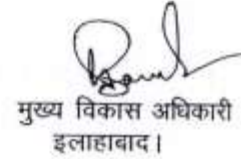 मुख्य विकास अधिकारी
इलाहाबाद।